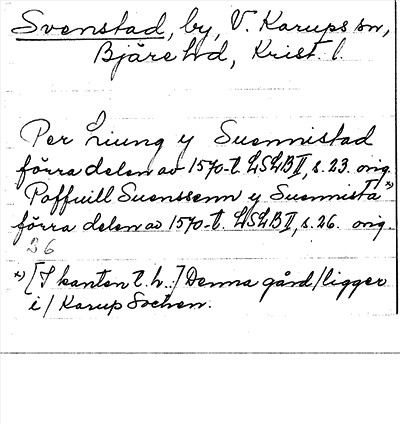 Svenstad, by, V. Karups sn,
Bjäre hd, Krist. l.
Per Liung y Suennistad
förra delen av 1570-t. LSLB II, s. 23. orig.
Poffuill Suenssenn y Suennista x)
förra delen av 1570-t. LSLB II, s. 26. orig.
36
x) [I kanten t. h.:] Denna gård /ligger
i/ Karup Sochen.